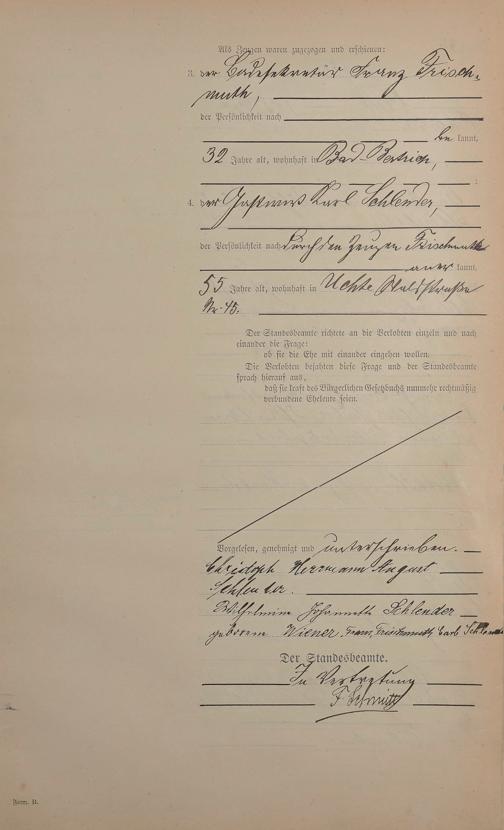 Als Zeugen waren zugezogen und erschienen:
3. der Badesekretär Franz Frisch-
muth,
der Persönlichkeit nach
be kannt,
32 Jahre alt, wohnhaft in Bad-Bertrich,
;
4. der Gastwirt Karl Schlender,
der Persönlichkeit nach durch den Zeugen Frischmuth
aner kannt,
55 Jahre alt, wohnhaft in Uchte
Nr. 45.
Der Standesbeamte richtete an die Verlobten einzeln und nach
einander die Frage:
ob sie die Ehe mit einander eingehen wollen.
Die Verlobten bejahten diese Frage und der Standesbeamte
sprach hierauf aus,
daß sie kraft des Bürgerlichen Gesetzbuchs nunmehr rechtmäßig
verbundene Eheleute seien.
Vorgelesen, genehmigt und unterschrieben.
Christoph Hermann August
Schlender.
Wilhelmine Schlender
geborene Wiener. Franz Frischmuth Carl Schlender
Der Standesbeamte.
In Vertretung
F Schmitz
Form. B.